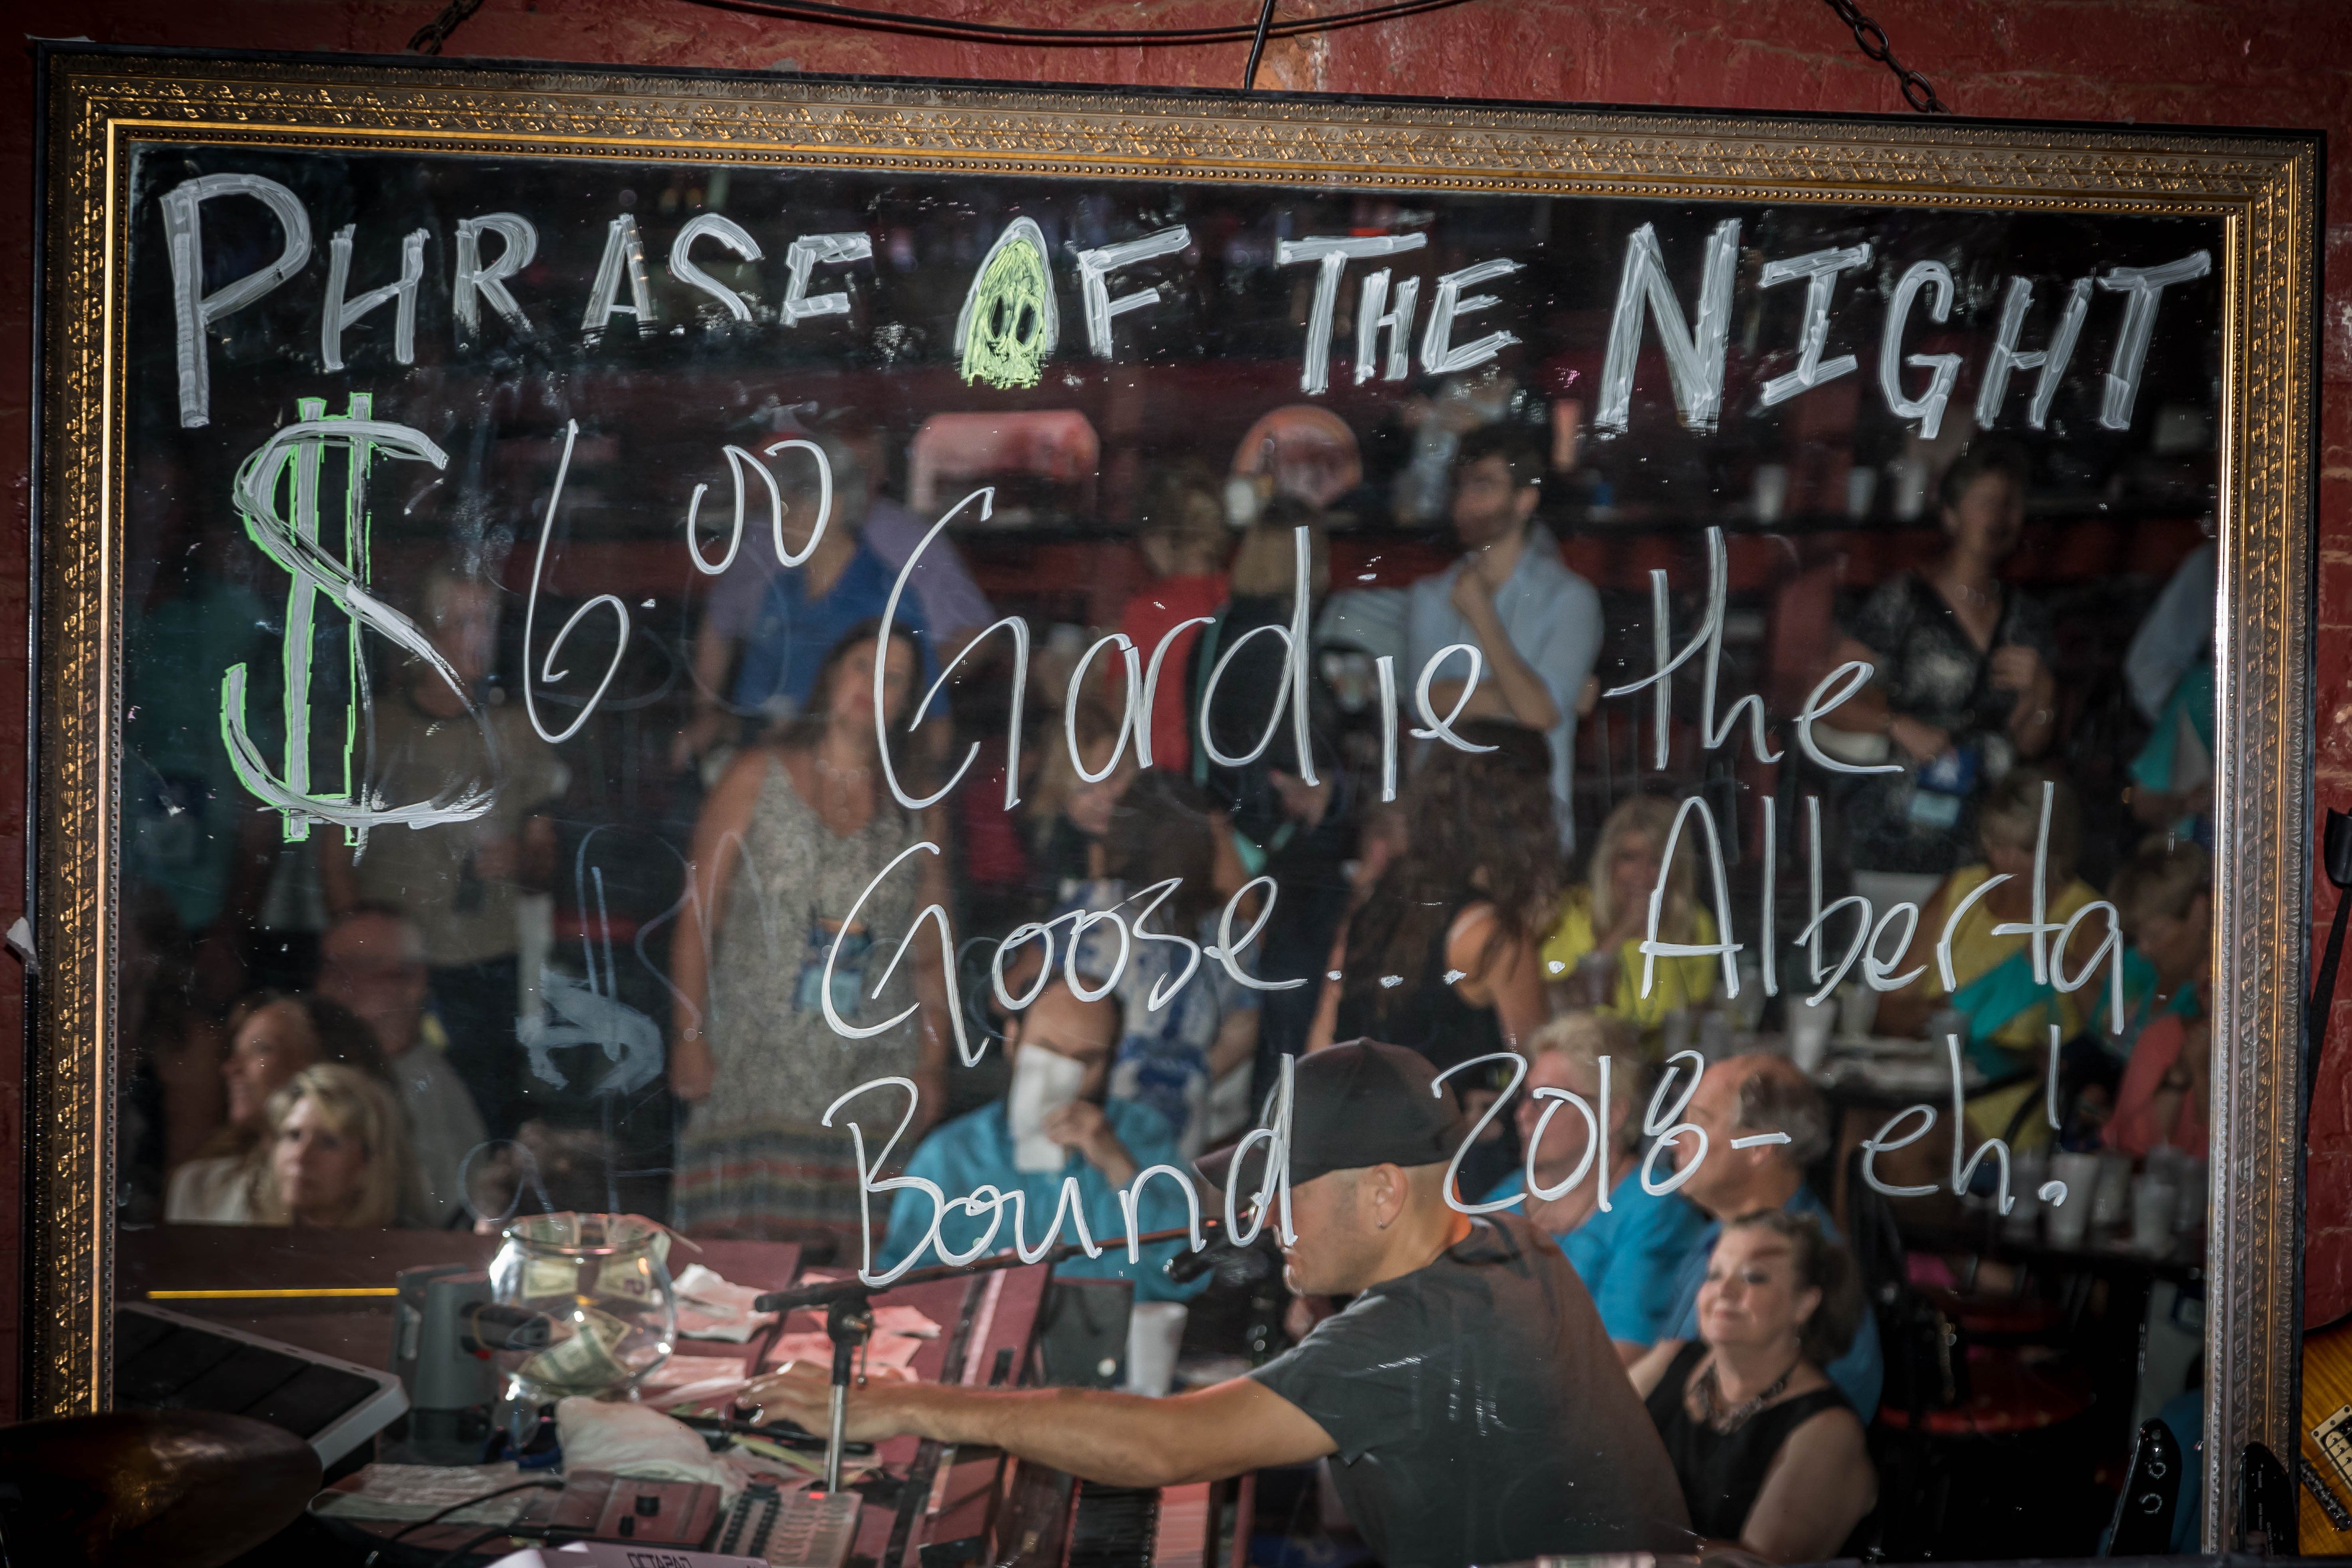 PHRASE OF THE NIGHT
$6.00 Gardie the
Goose..... Alberta
Bound 2018-eh!
OCTAPAD